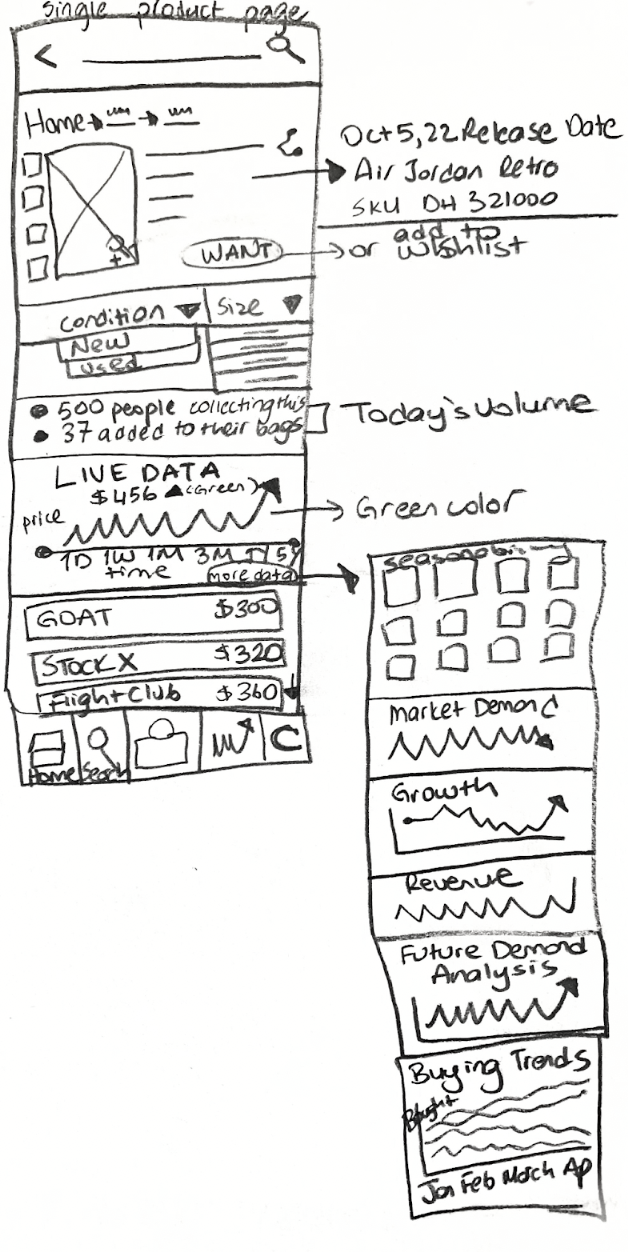 single product page
Home
Oct 5, 22 Release Date
Air Jordan Retro
SKU DH 321000
WANT
or add to wishlist
condition
Size
New
Used
500 people collecting this
37 added to their bags
Today's Volume
LIVE DATA
$456 (Green)
price
Green color
1D 1W 1M 3M 1Y 5Y
time
more data
GOAT $300
STOCK X $320
Flight Club $360
Home
Search
C
Market Demand
Growth
Revenue
Future Demand
Analysis
Buying Trends
Bought
Jan Feb March Ap